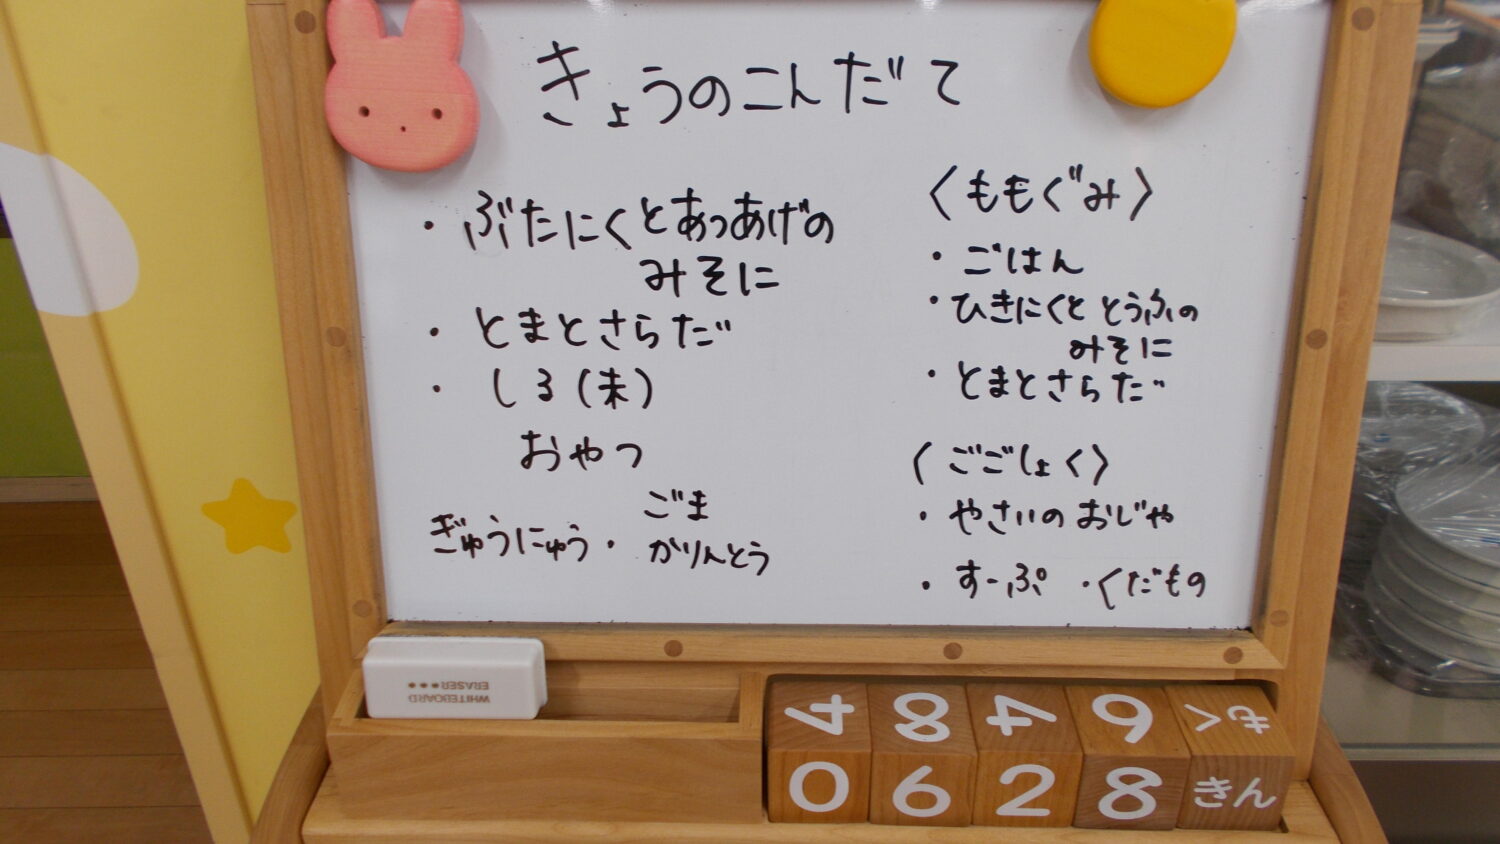 きょうのこんだて
・ぶたにくとあつあげの
みそに
・とまとさらだ
・しる(未)
おやつ
ぎゅうにゅう・ごま
かりんとう
〈ももぐみ〉
・ごはん
・ひきにくととうふの
みそに
・とまとさらだ
〈ごごしょく〉
・やさいのおじや
・すーぷ ・くだもの
WHITEBOARD
ERASER
4 8 4 6 もく
0 6 2 8 きん